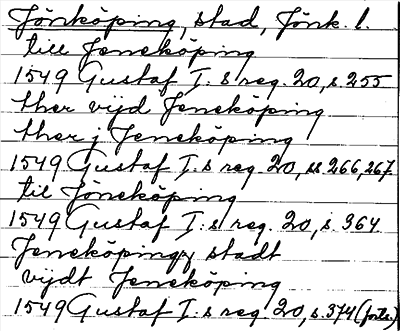 Jönköping, stad, Jönk. l.
till Jeneköping
1549 Gustaf I:s reg. 20, s. 255
ther vijd Jeneköping
ther j Jeneköping
1549 Gustaf I:s reg. 20, ss 266, 267
til Jöneköping
1549 Gustaf I:s reg. 20, s. 364
Jeneköpings stadt
vijdt Jeneköping
1549 Gustaf I:s reg. 20, s. 374 (forts.)